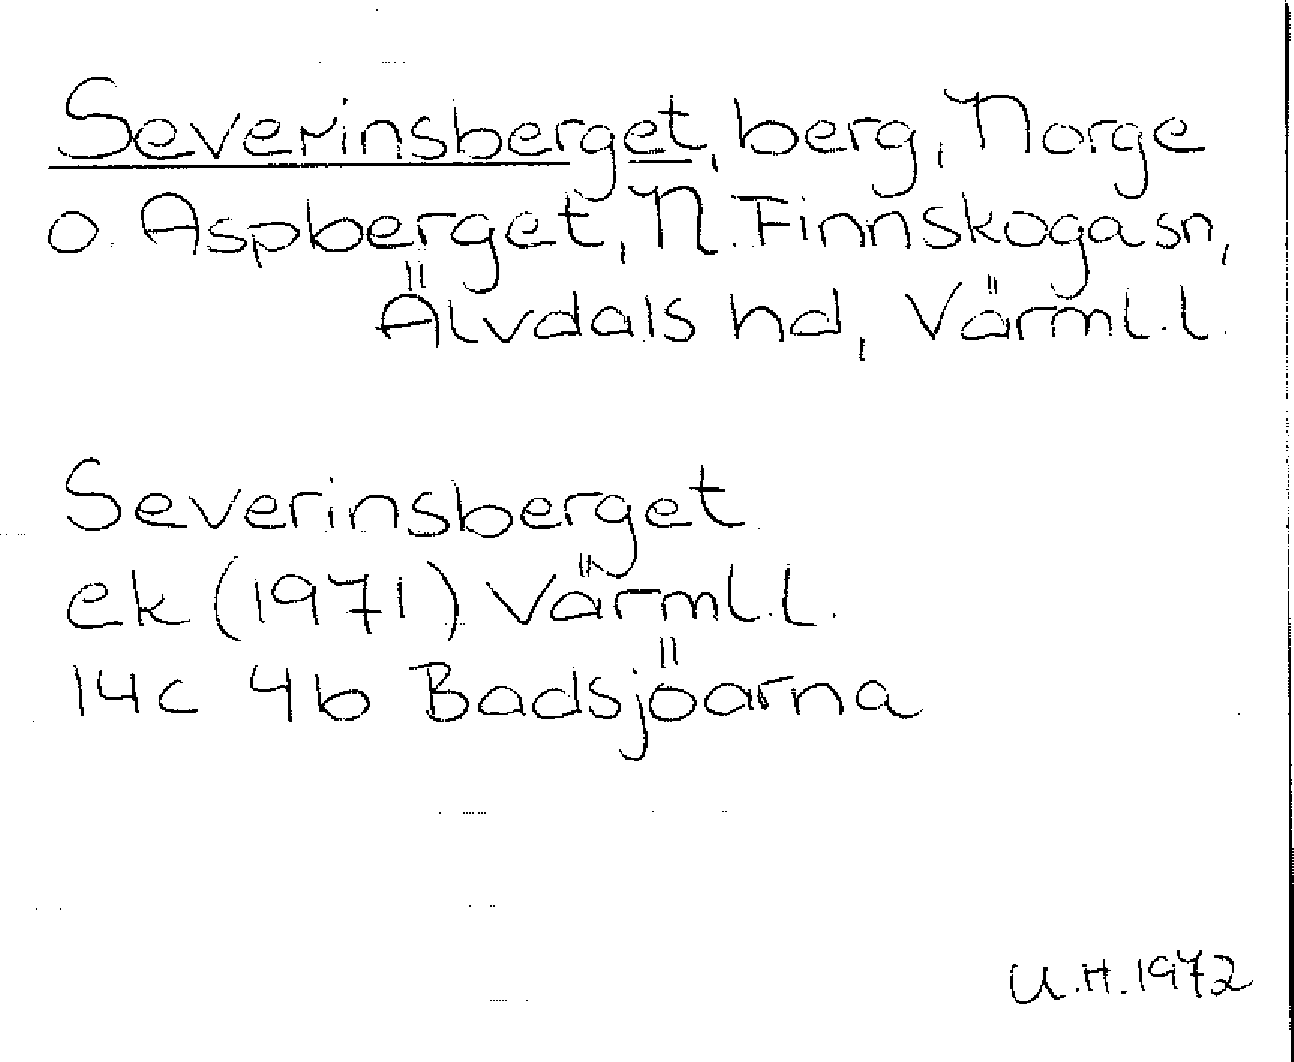 Severinsberget, berg, Norge
o. Aspberget, N. Finnskogasn,
Älvdals hd, Värml.l.
Severinsberget
ek (1971) Värml.l.
14c 4b Badsjöarna
U.H. 1972